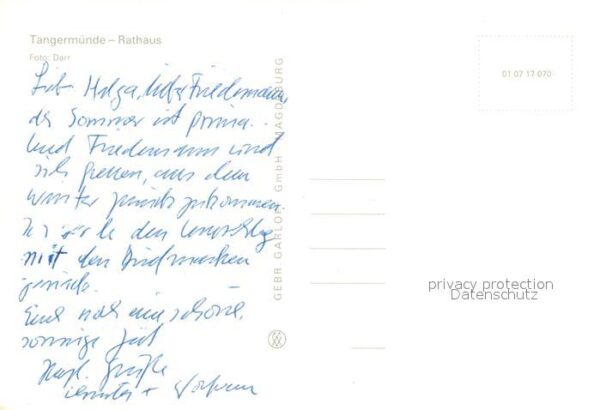 Tangermünde – Rathaus
Foto: Darr
Liebe Helga, lieber Friedemann,
der Sommer ist prima.
Und Friedemann wird
sich freuen, aus dem
zurück zukommen.
den Umschlag
mit den Briefmarken
zurück.
Euch noch eine schöne,
sonnige Zeit
Herzl. Grüße
+
GEBR. GARLOFF GmbH MAGDEBURG
01 07 17 070
privacy protection
Datenschutz